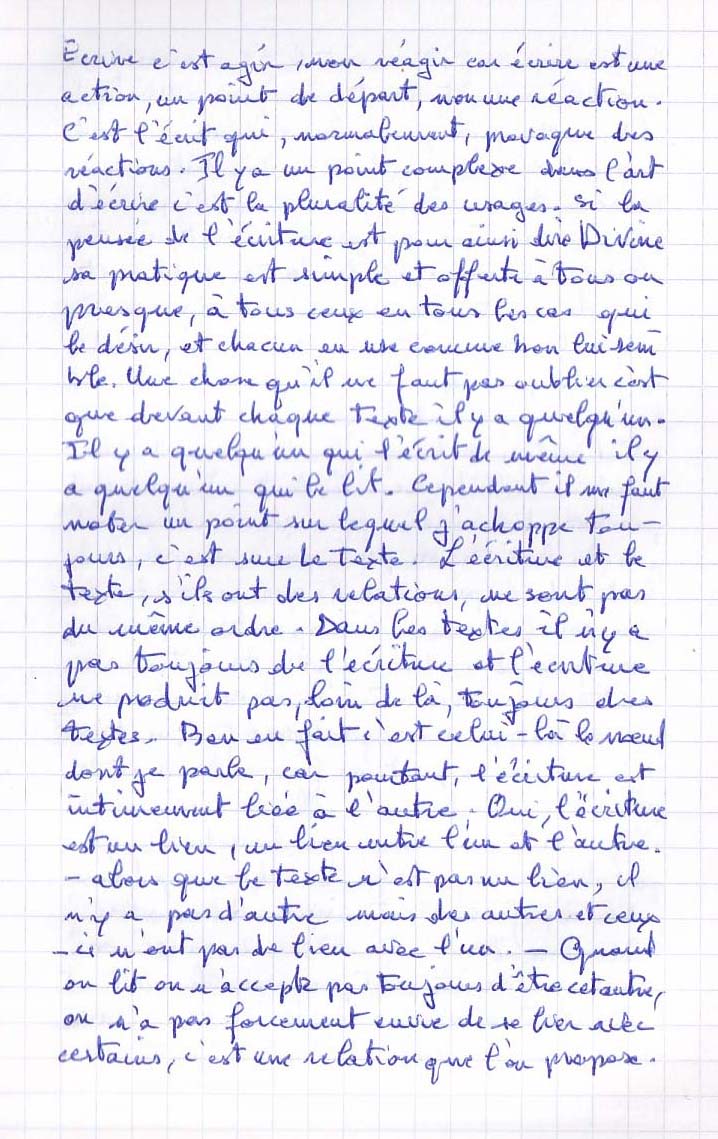 Ecrire c'est agir, non réagir car écrire est une
action, un point de départ, non une réaction.
C'est l'écrit qui, normalement, provoque des
réactions. Il y a un point complexe dans l'art
d'écrire c'est la pluralité des usages. Si la
pensée de l'écriture est pour ainsi dire Divine
sa pratique est simple et offerte à tous ou
presque, à tous ceux en tous les cas qui
le désir, et chacun en use comme bon lui sem
ble. Une chose qu'il ne faut pas oublier c'est
que devant chaque texte il y a quelqu'un.
Il y a quelqu'un qui l'écrit de même il y
a quelqu'un qui le lit. Cependant il me faut
noter un point sur lequel j'achoppe tou-
jours, c'est sur le texte. L'écriture et le
texte, s'ils ont des relations, ne sont pas
du même ordre. Dans les textes il n'y a
pas toujours de l'écriture et l'écriture
ne produit pas, loin de là, toujours des
textes. Bon en fait c'est celui-là le nœud
dont je parle, car pourtant, l'écriture est
intimement liée à l'autre. Oui, l'écriture
est un lien, un lien entre l'un et l'autre.
- alors que le texte n'est pas un lien, il
n'y a pas d'autre mais des autres et ceux
-ci n'ont pas de lien avec l'un. - Quand
on lit on n'accepte pas toujours d'être cet autre,
on n'a pas forcement envie de se lier avec
certains, c'est une relation que l'on propose.